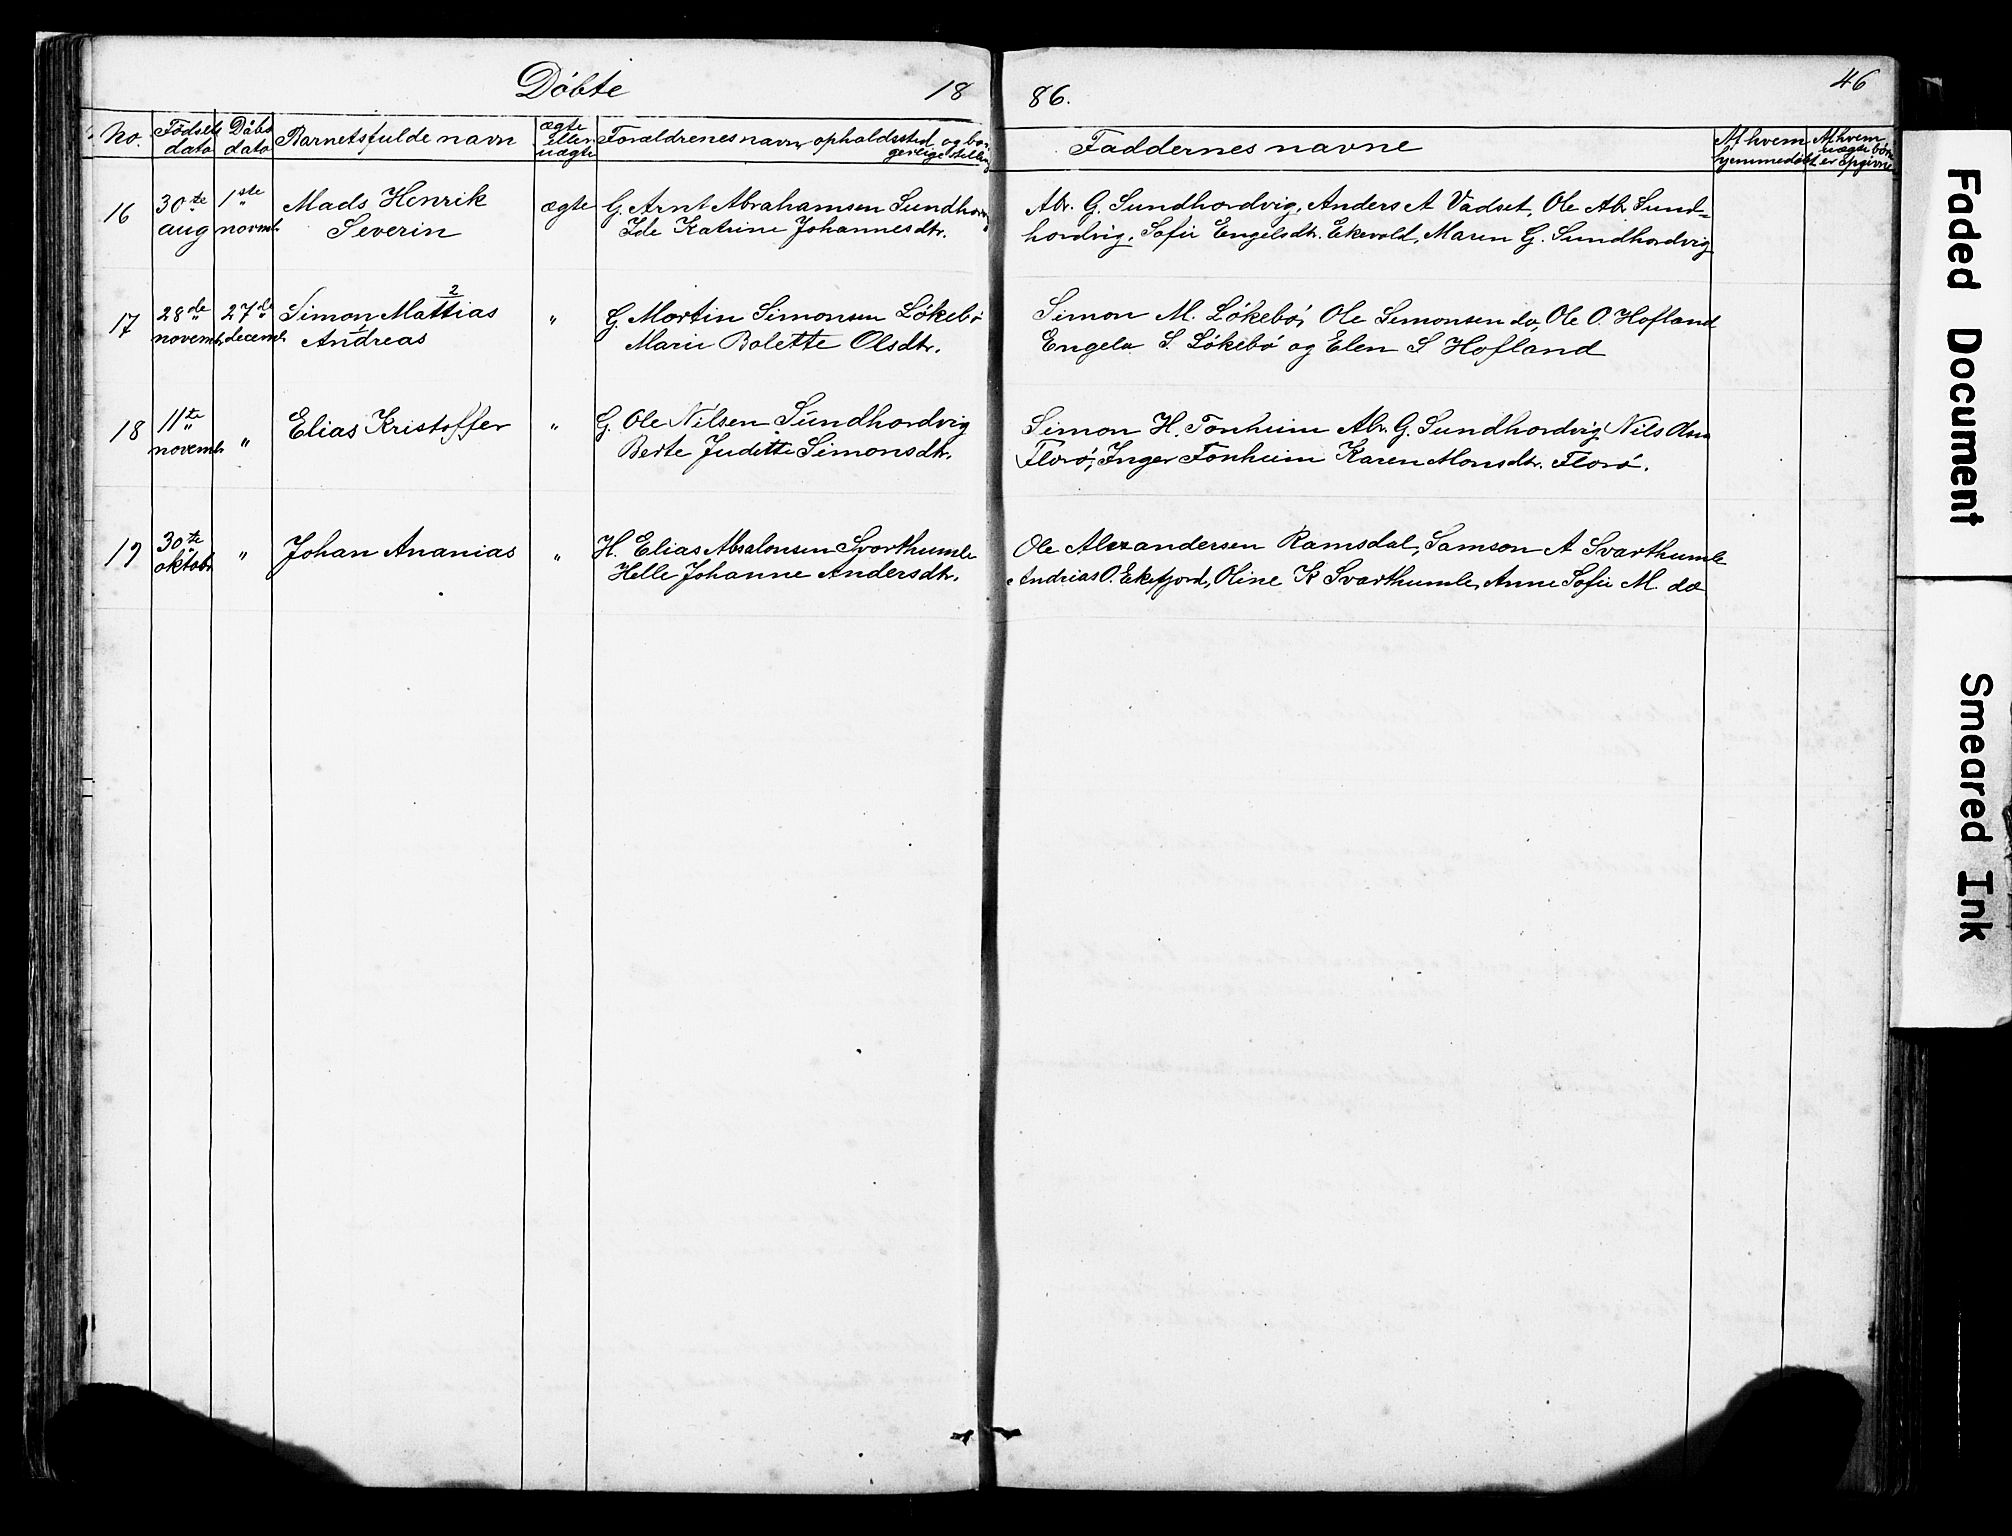 Döbte 18 86. 46
No. Födsels dato Dåbs dato Barnets fulde navn ægte eller uægte Forældrenes navn, opholdssted og borgerlige stilling Faddernes navne Af hvem hjemmedöbt Af hvem uægte börn er opgivne
16 30te aug 1ste novemb. Mads Henrik Severin ægte G. Arnt Abrahamsen Sundhordvig
Ide Katrine Johannesdtr.
Abr. G. Sundhordvig, Anders A Vadset, Ole Abr. Sund-
hordvig, Sofie Engelsdtr. Ekevold, Maren G. Sundhordvig
17 28de novemb. 27de decemb. Simon Mattias 2
Andreas 1 " G. Martin Simonsen Lökebö
Marie Bolette Olsdtr.
Simon M. Lökebö, Ole Simonsen do, Ole O. Hofland
Engela S. Lökebö og Elen S Hofland
18 11te novemb. " Elias Kristoffer " G. Ole Nilsen Sundhordvig
Berte Juditte Simonsdtr.
Simon H. Tonheim Abr. G. Sundhordvig, Nils Olsen
Florö, Inger Tonheim Karen Monsdtr. Florö.
19 30te oktobr. " Johan Ananias " H. Elias Absalonsen Svarthumle
Helle Johanne Andersdtr.
Ole Alexandersen Ramsdal, Samson A Svarthumle
Andrias O. Ekefjord, Oline K Svarthumle, Anne Sofie M. do
Faded Document
Smeared Ink